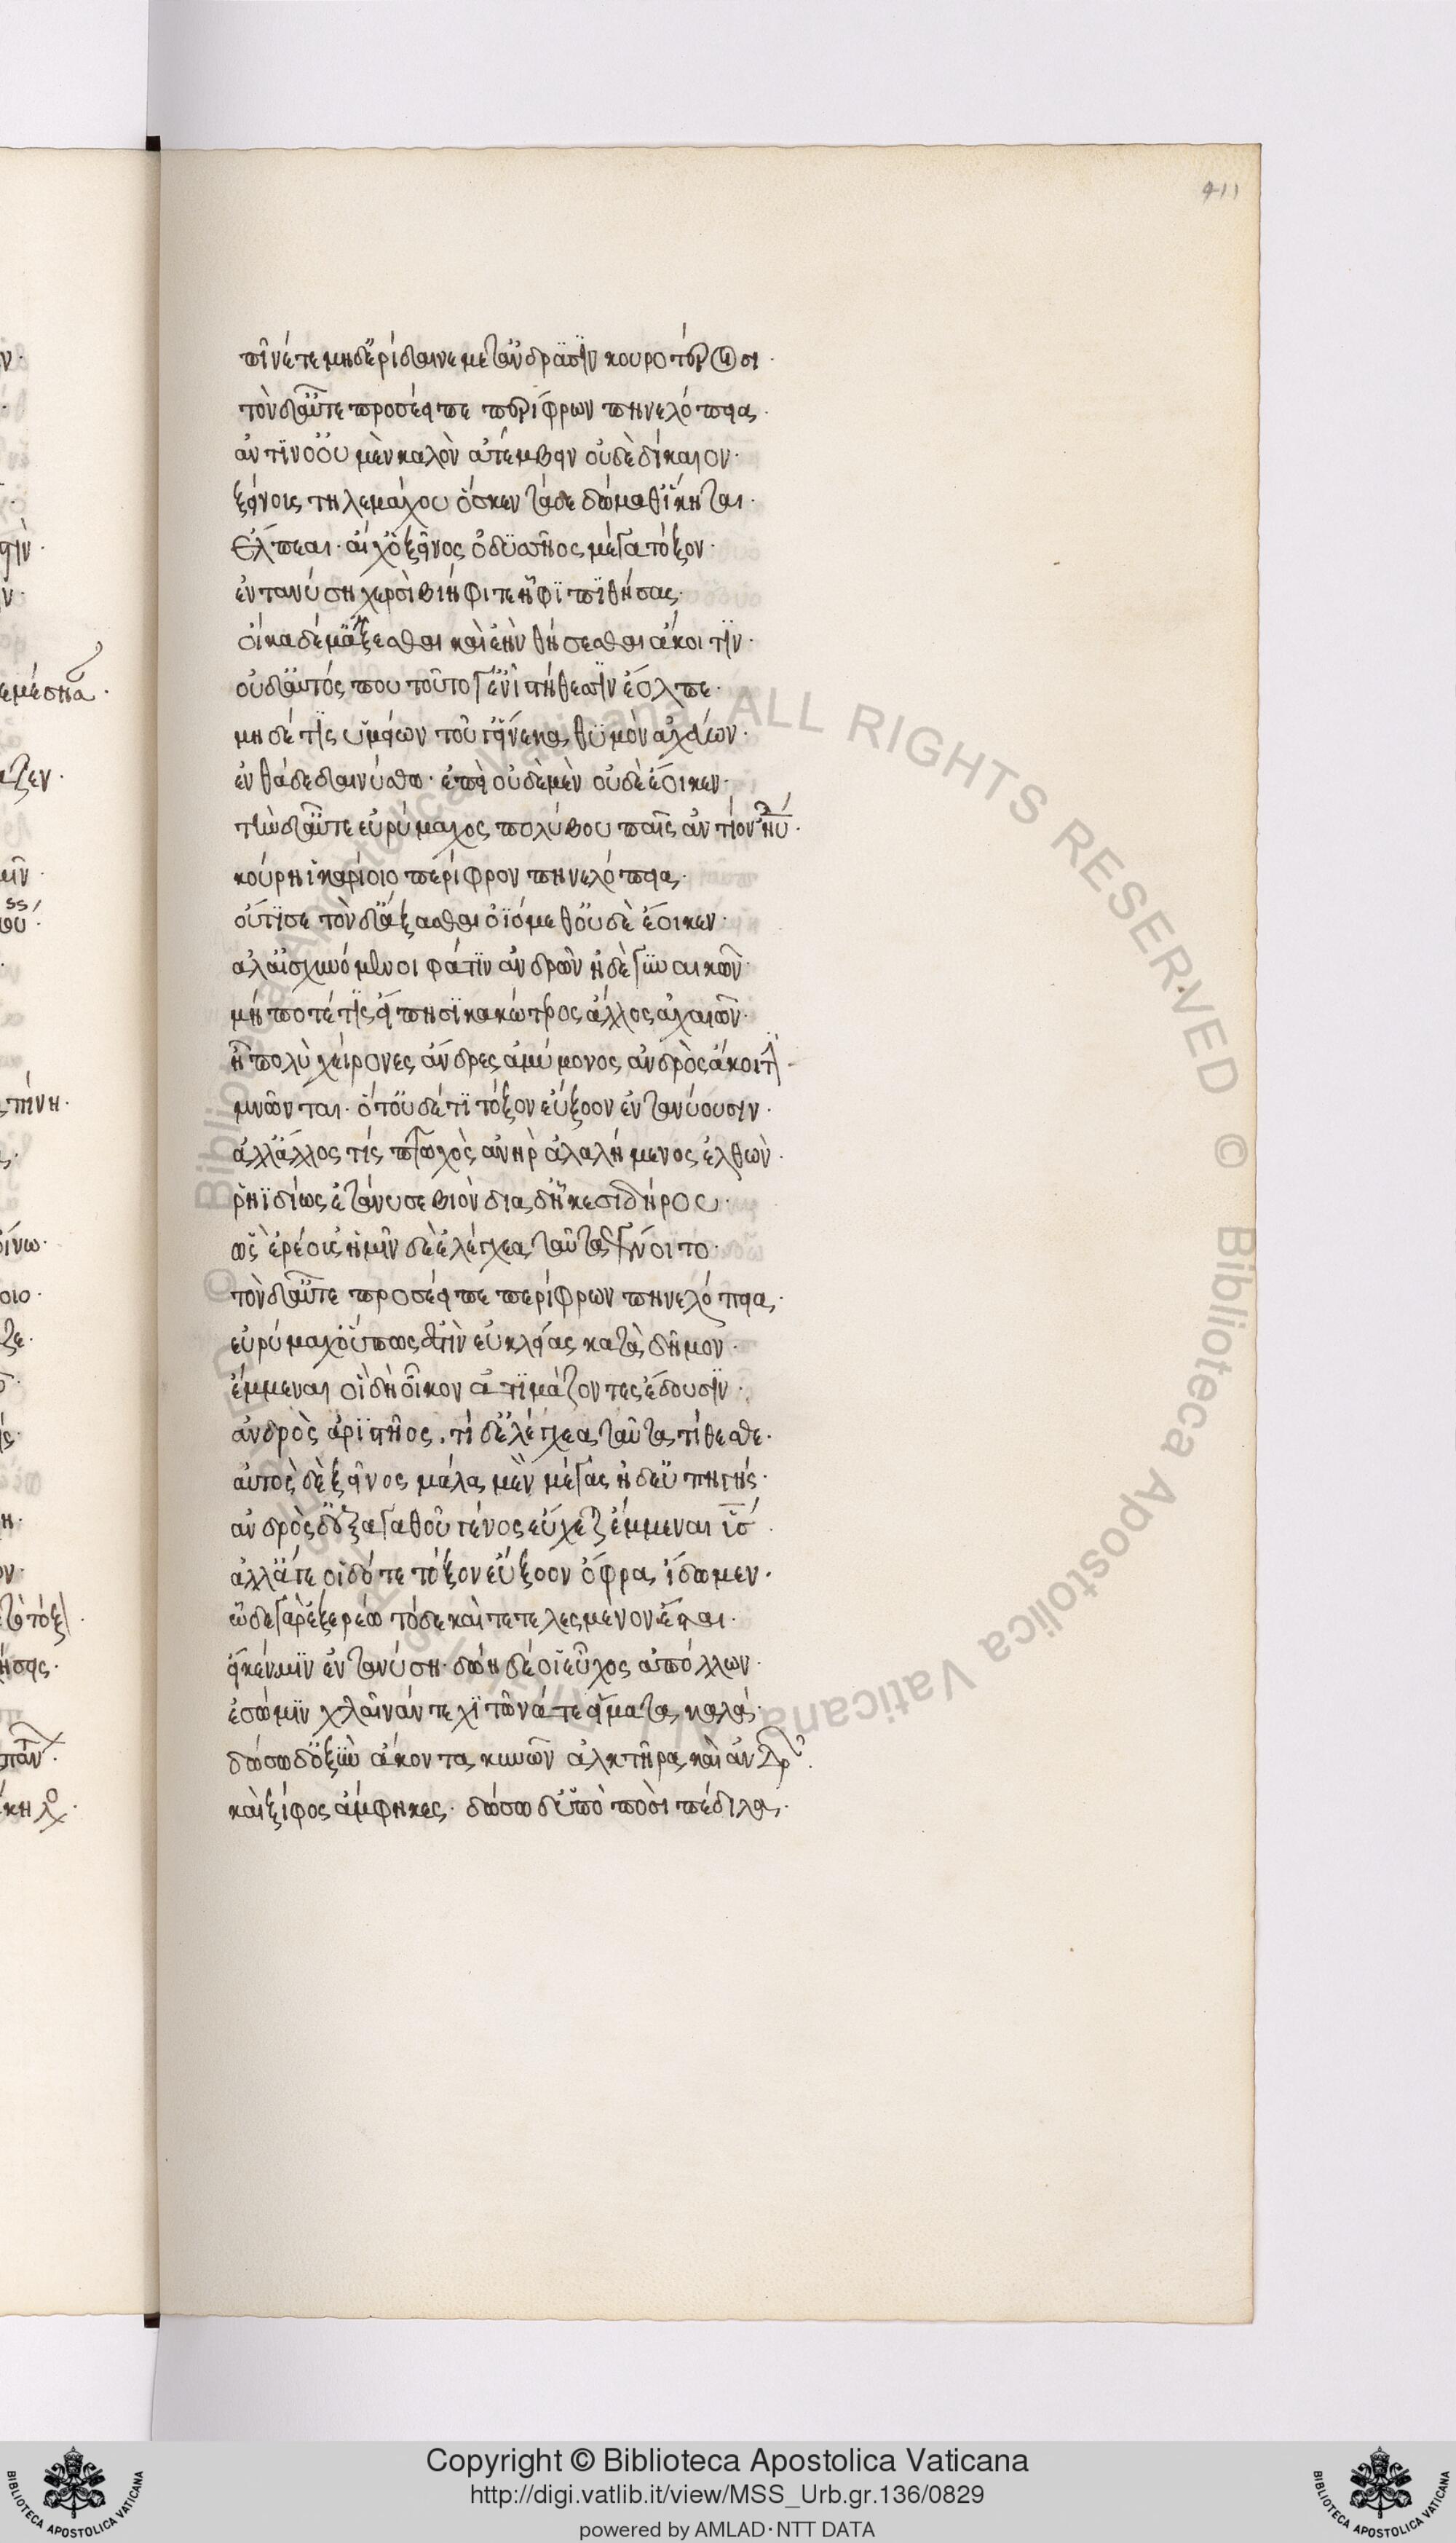 411
πῖνέ τε μηδ' ἐρίδαινε μετ' ἀνδράσϊν κουροτέροισι·
τὸν δ' αὖτε προσέειπε περίφρων πηνελόπεια·
ἀντίνο' οὐ μὲν καλὸν ἀτέμβειν οὐδὲ δίκαιον·
ξείνοις τηλεμάχου ὅς κεν τάδε δώμαθ' ἵκηται·
ἔλπεαι· αἴ χ' ὁ ξεῖνος ὀδυσῆος μέγα τόξον·
ἐντανύση χερσὶ βιήφι τε ἧφϊ πϊθήσας·
οἴκαδέ μ' ἄξεσθαι καὶ ἑὴν θήσεσθαι ἄκοιτιν·
οὐδ' αὐτός που τοῦτο γ' ἐνὶ στήθεσϊν ἔολπε·
μη δέ τϊς ὑμείων τοῦ γ' εἵνεκα θϋμὸν ἀχέων·
ἐνθάδε δαινύσθω· ἐπεὶ οὐδὲ μὲν οὐδὲ ἔοικεν·
τὴν δ' αὖτ' εὐρύμαχος πολύβου παῖς ἀντίον ηὔ·
κούρη ἰκαρίοιο περίφρον πηνελόπεια·
οὔτϊ σε τὸν δ' ἄξασθαι ὀϊόμεθ' οὐδὲ ἔοικεν·
ἀλλ' αἰσχυνόμενοι φάτϊν ἀνδρῶν ἠδὲ γϋναικῶν·
μή ποτέ τϊς εἴπησϊ κακώτερος ἄλλος ἀχαιῶν·
ἦ πολὺ χείρονες ἄνδρες ἀμύμονος ἀνδρὸς ἄκοιτ
μνῶνται· ὅτ' οὐδέ τϊ τόξον εὔξοον ἐντανύουσιν·
ἀλλ' ἄλλος τίς πτωχὸς ἀνηρ ἀλαλήμενος ἐλθὼν·
ῥηϊδίως ἐτάνυσε βιὸν δια δ' ἧκε σιδήρου·
ὣς ἐρέους' ἡμῖν δὲ ἐλέγχεα ταῦτα γένοιτο·
τὸν δ' αὖτε προσέειπε περίφρων πηνελόπεια·
εὐρύμαχ' οὔπως ἐστὶν εὐκλείας κατὰ δῆμον·
ἔμμεναι οἳ δὴ οἶκον ἀτϊμάζοντες ἔδουσϊν·
ἀνδρὸς ἀρϊστῆος. τί δ' ἐλέγχεα ταῦτα τίθεσθε·
αὐτος δὲ ξεῖνος μάλα μὲν μέγας ἠδ' εὐπηγής·
ἀνδρὸς δ' ἐξ ἀγαθοῦ γένος εὔχεται ἔμμεναι
ἀλλ' ἄγε οἱ δότε τόξον εὔξοον ὄφρα ἴδωμεν·
ὧδε γὰρ ἐξερέω τόδε καὶ τετελεσμενον ἔσται·
εἴ κέν μϊν ἐντανύση· δώη δέ οἱ εὖχος ἀπόλλων·
ἕσω μϊν χλαῖνάν τε χϊτῶνά τε εἵματα καλά·
δώσω δ' ὀξϋὺ ἄκοντα κυνῶν ἀλκτῆρα καὶ ἀνδρ
καὶ ξίφος ἄμφηκες· δώσω δ' ὑπὸ πὸσι πέδιλα·
Copyright © Biblioteca Apostolica Vaticana
http://digi.vatlib.it/view/MSS_Urb.gr.136/0829
powered by AMLAD·NTT DATA